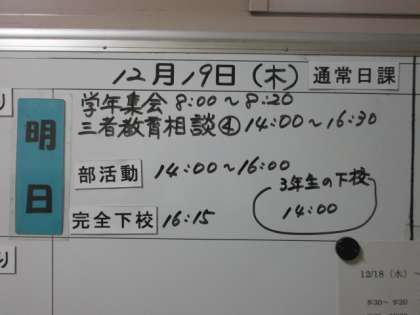 12月19日(木) 通常日課
明日
学年集会 8:00～8:20
三者教育相談④ 14:00～16:30
部活動 14:00～16:00
3年生の下校
14:00
完全下校 16:15
12/18(水)～
8:30～ 9:20
り